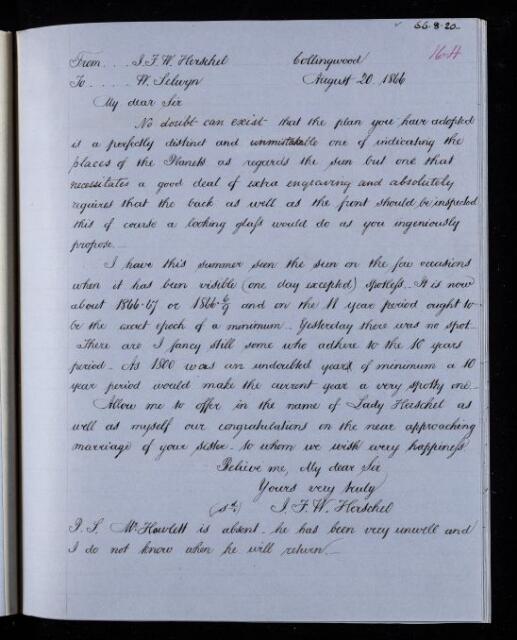 66.8.20
16·H
From . . . J. F. W. Herschel Collingwood
To . . . . . W. Selwyn August 20. 1866
My dear Sir
No doubt can exist that the plan you have adopted
is a perfectly distinct and unmistakable one of indicating the
places of the Planets as regards the sun but one that
necessitates a good deal of extra engraving and absolutely
requires that the back as well as the front should be inspected
this of course a looking glass would do as you ingeniously
propose.—
I have this summer seen the sun on the few occasions
when it has been visible (one day excepted) spotless. It is now
about 1866-67 or 1866· and on the 11 year period ought to
be the exact epoch of a minimum. Yesterday there was no spot
There are I fancy still some who adhere to the 10 years
period — As 1800 was an undoubted year of menimum a 10
year period would make the current year a very spotty one—
Allow me to offer in the name of Lady Herschel as
well as myself our congratulations on the near approaching
marriage of your sister. to whom we wish every happiness
Believe me, My dear Sir
Yours very truly
(sd.) J. F. W. Herschel
P. S. Mr Howlett is absent. he has been very unwell and
I do not know when he will return.—